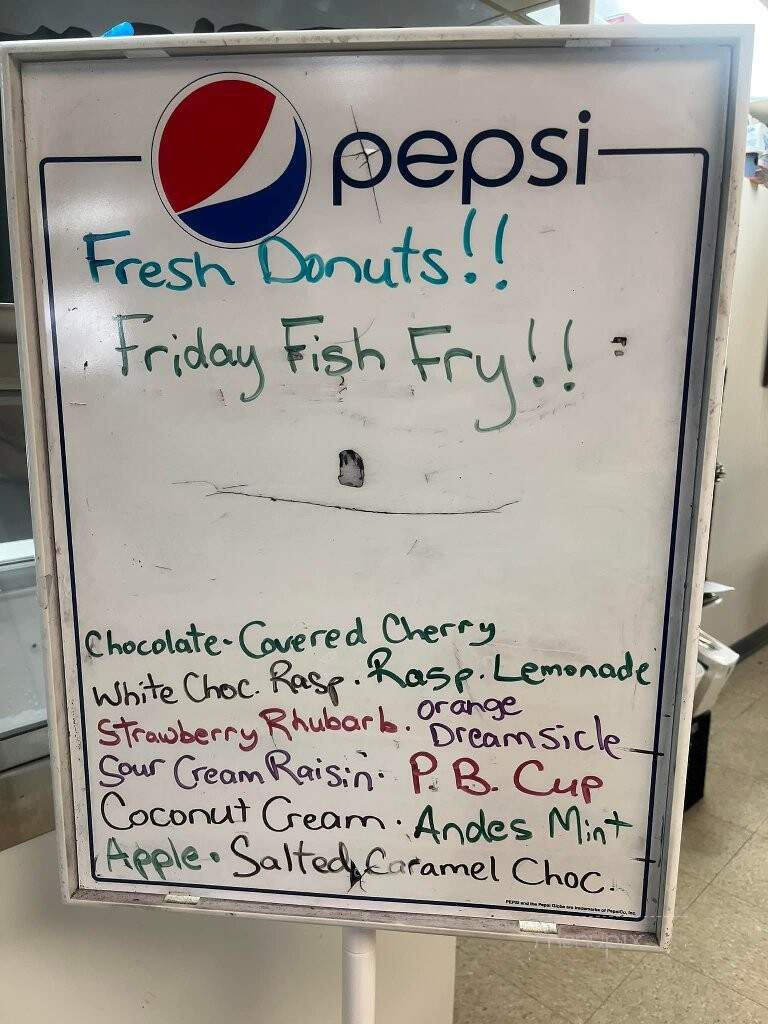 pepsi
Fresh Donuts!!
Friday Fish Fry!!
Chocolate-Covered Cherry
White Choc. Rasp. · Rasp. Lemonade
Strawberry Rhubarb · orange Dreamsicle
Sour Cream Raisin · P.B. Cup
Coconut Cream · Andes Mint
Apple · Salted Caramel Choc.
PEPSI and the Pepsi Globe are trademarks of PepsiCo, Inc.